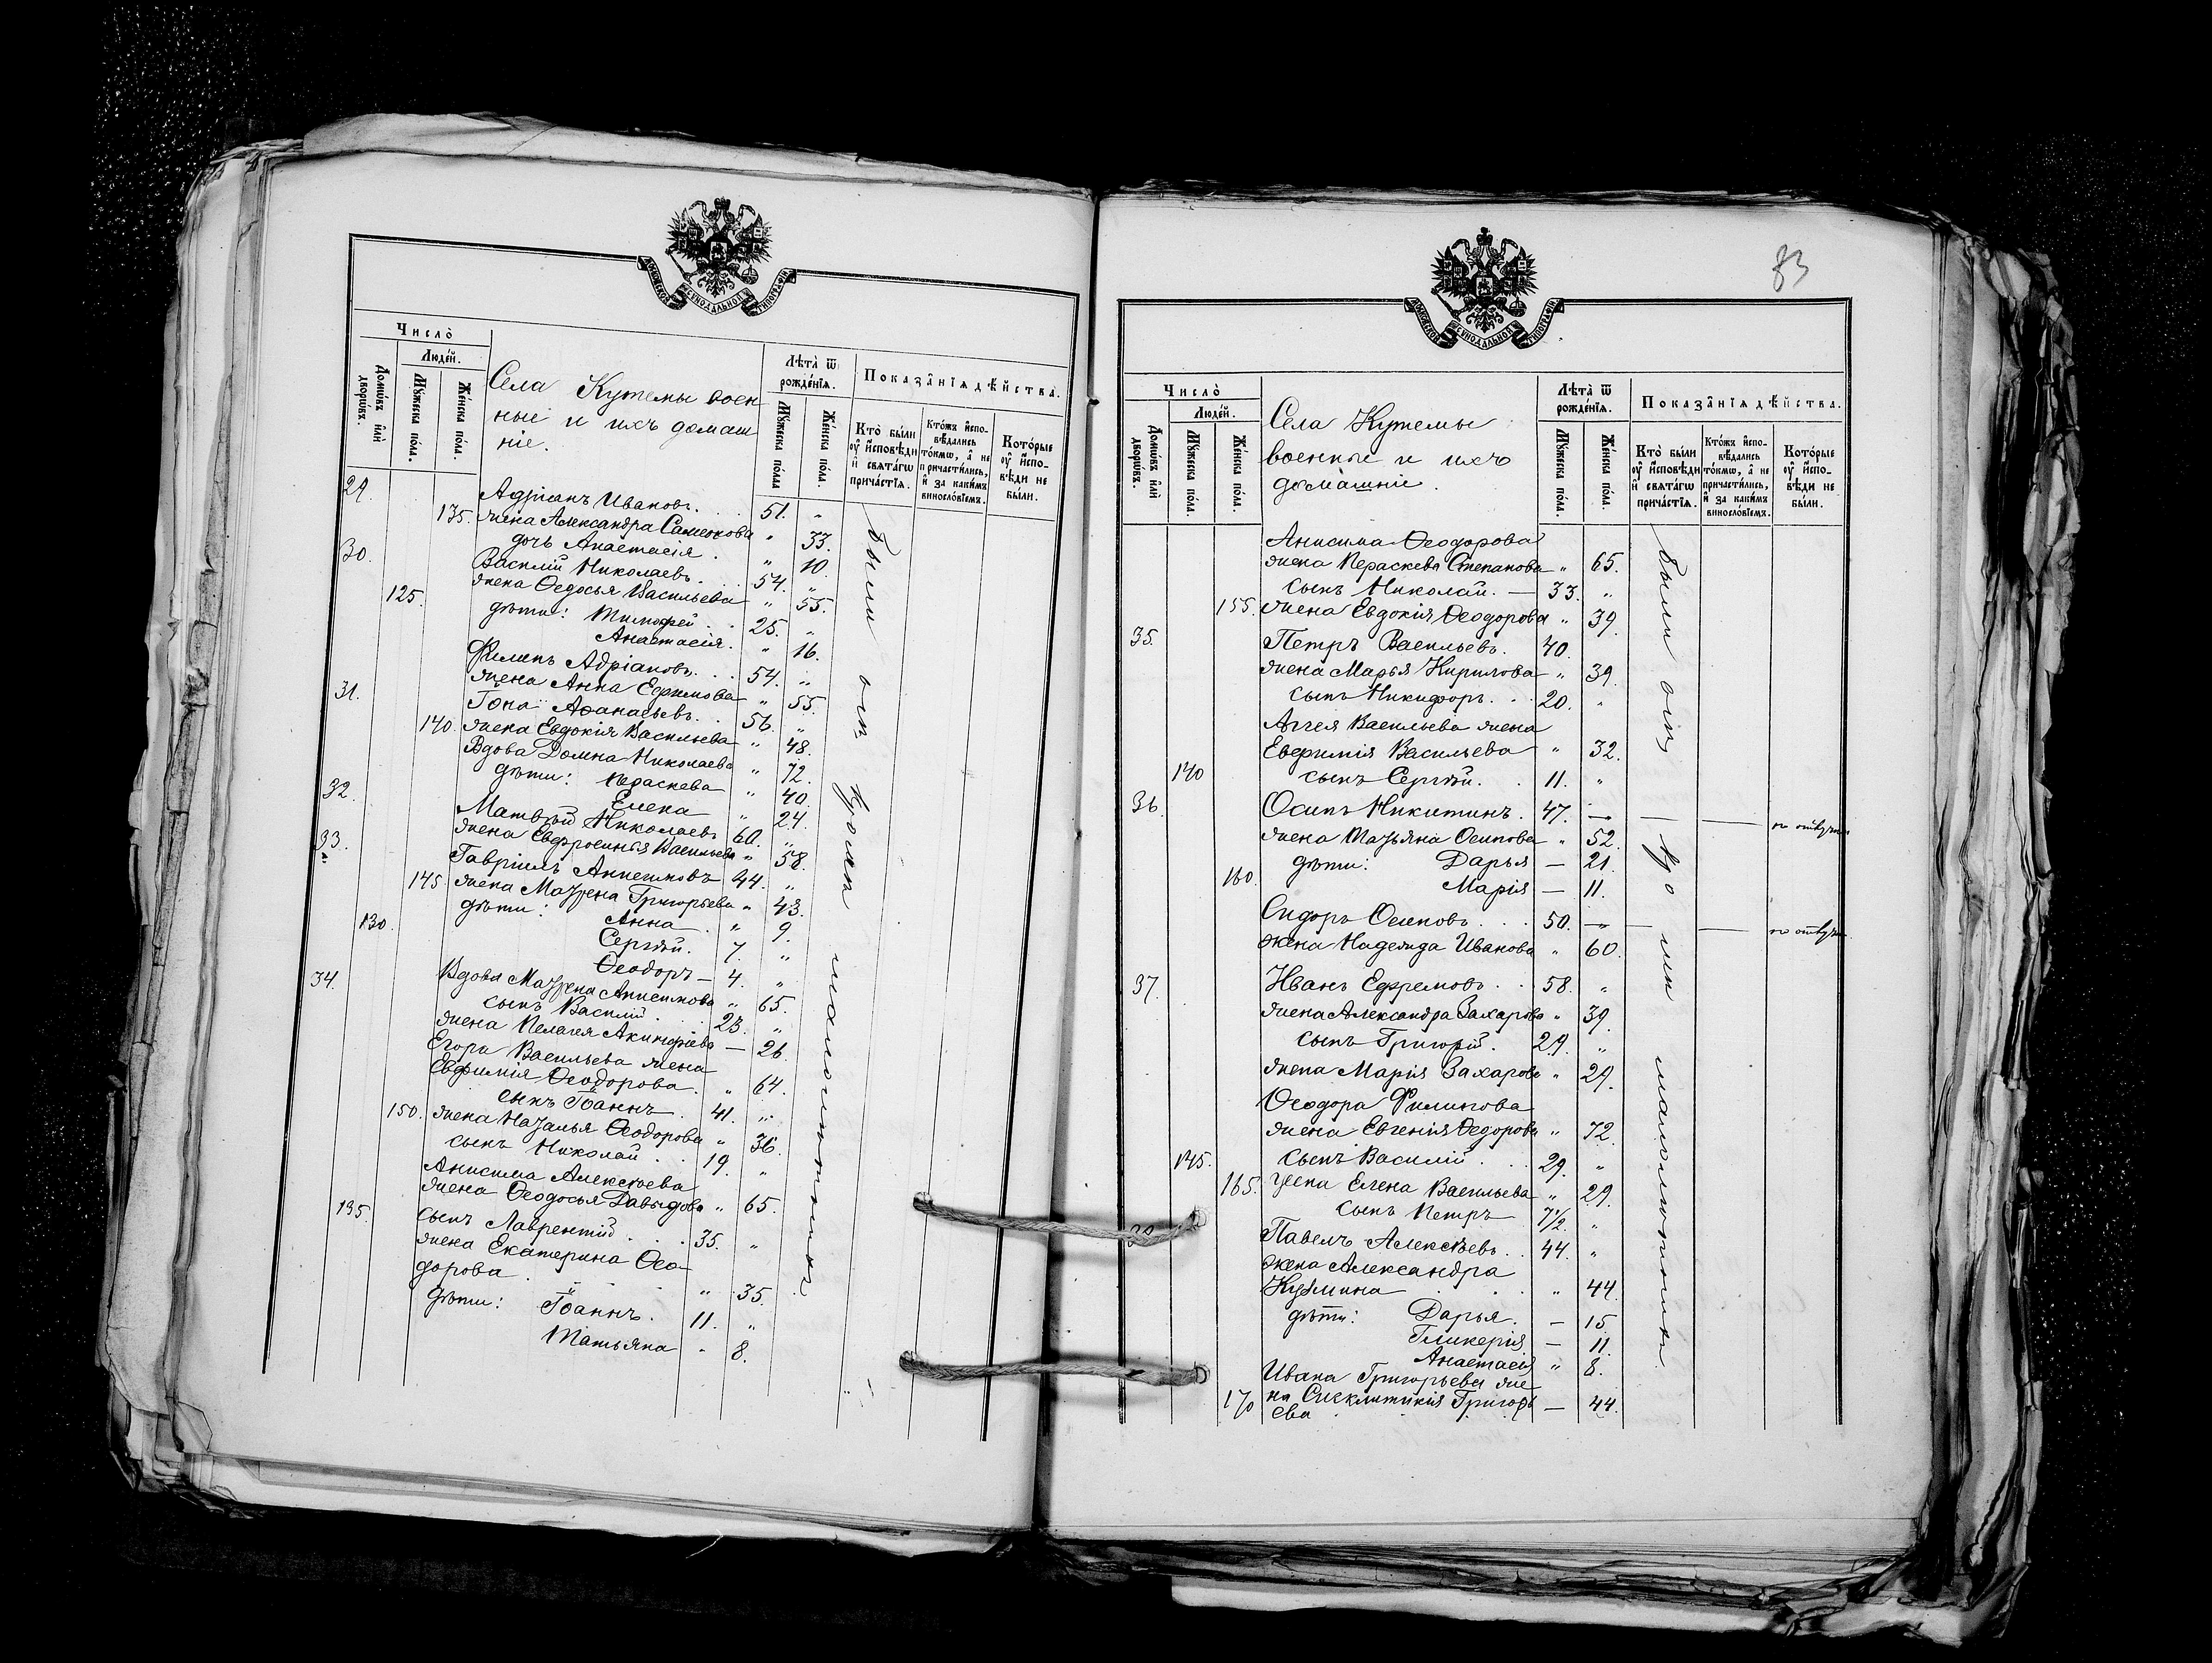 МОСКОВСКОЙ СѴНОДАЛЬНОЙ ТИПОГРАФІИ
Число̀
Люде́й.
Домѡ́въ и҆лѝ дворѡ́въ.
Мꙋ́жеска по́ла.
Же́нска по́ла.
Села Кутемы воен
ные и ихъ домаш
ніе.
Лѣ́та ѿ рожде́нїѧ.
Мꙋ́жеска по́ла
Же́нска по́ла.
Показа̑нїѧ дѣ́йства.
Кто̀ бы́ли ᲂу҆ и҆сповѣди и҆ свѧта́гѡ прича́стїѧ.
Кто́жъ и҆спо-вѣ́дались то́кмѡ, а҆ не причасти́лись, и҆ за каки́мъ винословїемъ.
Кото́рые ᲂу҆ и҆спо-вѣди не бы́ли.
29. Адріанъ Ивановъ. 51. "
135. жена Александра Самсонова " 33.
дочь Анастасія. " 10.
30. Василій Николаевъ. 54. "
жена Ѳедосья Васильева " 55.
125. дѣти: Тимофей 25. "
Анастасія. " 16.
Филипъ Адріановъ. 54. "
жена Анна Ефимова " 55.
31. Іона Аѳанасьевъ. 56. "
140. жена Евдокія Васильева " 48.
Вдова Домна Николаева " 72.
дѣти: Пераскева " 40.
Елена " 24.
32. Матвѣй Николаевъ 60. "
жена Евфросинія Васильева " 58.
33. Гавріилъ Анисимовъ 44. "
145. жена Маѵрена Григорьева " 43.
дѣти: Анна. " 9.
130. Сергѣй. 7. "
Ѳеодоръ — 4. "
34. Вдова Маѵрена Анисимова " 65.
сынъ Василій 23. "
жена Пелагея Акинфіева — 26.
Егора Васильева жена
Евфимія Ѳеодорова. " 64.
сынъ Іоаннъ. 41. "
150. жена Наталья Ѳеодорова " 36.
сынъ Николай. 19. "
Анисима Алексѣева
жена Ѳеодосья Давыдова " 65.
135. сынъ Лаврентій 35. "
жена Екатерина Ѳео-
дорова. " 35.
дѣти: Іоаннъ. 11. "
Татьяна " 8.
были
83
МОСКОВСКОЙ СѴНОДАЛЬНОЙ ТИПОГРАФІИ
Число̀
Люде́й.
Домѡ́въ и҆лѝ дворѡ́въ.
Мꙋ́жеска по́ла.
Же́нска по́ла.
Села Кутемы
военные и ихъ
домашніе.
Лѣ́та ѿ рожде́нїѧ.
Мꙋ́жеска по́ла.
Же́нска по́ла.
Показа̑нїѧ дѣ́йства.
Кто̀ бы́ли ᲂу҆ и҆сповѣди и҆ свѧта́гѡ прича́стїѧ.
Кто́жъ и҆спо-вѣ́дались то́кмѡ, а҆ не причасти́лись, и҆ за каки́мъ винословїемъ.
Кото́рые ᲂу҆ и҆спо-вѣди не бы́ли.
Анисима Ѳеодорова
жена Пераскева Степанова " 65.
сынъ Николай. — 33. "
155. жена Евдокія Ѳеодорова " 39.
35. Петръ Васильевъ. 40.
жена Марья Кирилова " 39.
сынъ Никифоръ. 20. "
Аггея Васильева жена
Евфимія Васильева " 32.
140 сынъ Сергѣй. 11. "
36. Осипъ Никитинъ. 47. — — —
жена Татьяна Осипова " 52.
дѣти: Дарья — 21.
160. Марія — 11.
Сидоръ Осиповъ. 50. — — —
жена Надежда Иванова " 60.
37. Иванъ Ефремовъ. 58. "
жена Александра Захарова " 39.
сынъ Григорій. 29. "
жена Марія Захарова " 29.
Ѳеодора Филипова
жена Евгенія Ѳедорова " 72.
145. сынъ Василій 29. "
165. жена Елена Васильева " 29.
сынъ Петръ 7½. "
38. Павелъ Алексѣевъ. 44. "
жена Александра
Кузьмина " 44.
дѣти: Дарья. — 15
Гликерія — 11.
Анастасія " 8.
Ивана Григорьева же-
170 на Сигклитикія Григорь — 44.
ева
были